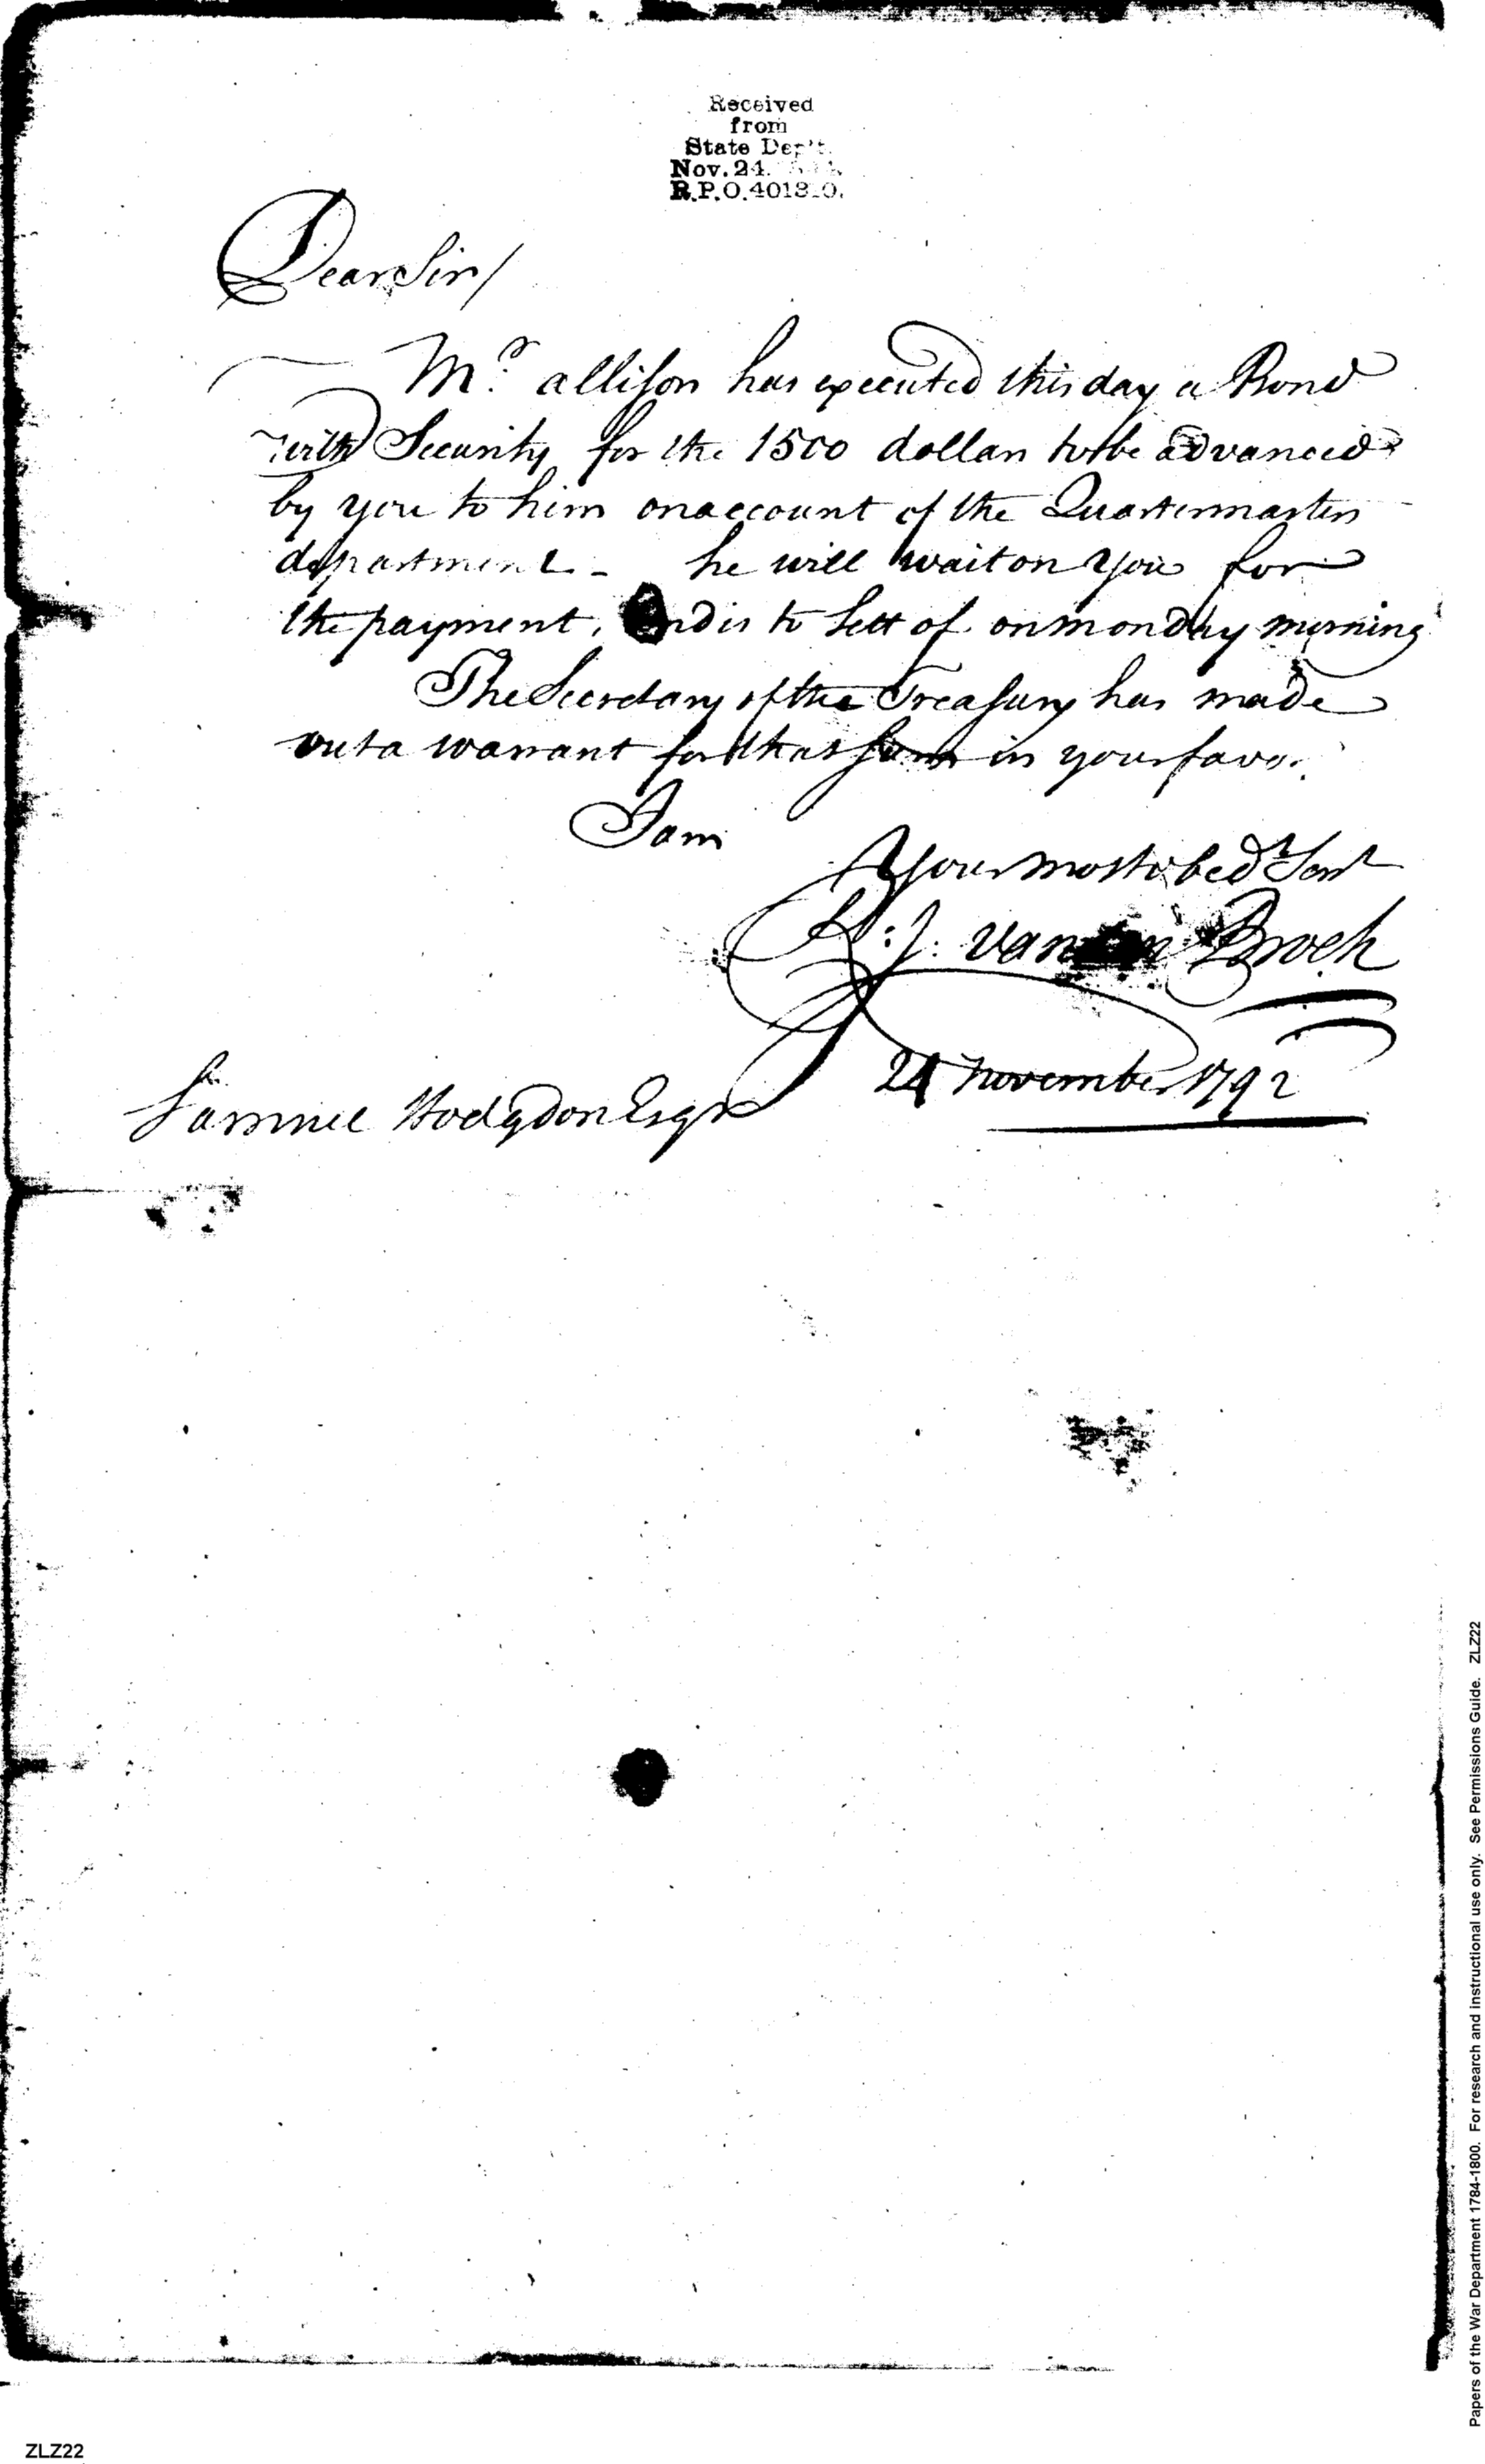 Received
from
State Dep't.
Nov. 24.
R.P.O. 401310.
Dear Sir/
Mr. allison has executed this day a Bond
with Security for the 1500 dollars to be advanced
by you to him on account of the Quartermasters
department - he will wait on you for
the payment, and is to sett of on monday morning
The Secretary of the Treasury has made
out a warrant for that sum in your favor.
I am
Your most obedt Sert
P: J. van Broek
24 november 1792
Samuel Hodgdon Esqr
Papers of the War Department 1784-1800. For research and instructional use only. See Permissions Guide. ZLZ22
ZLZ22